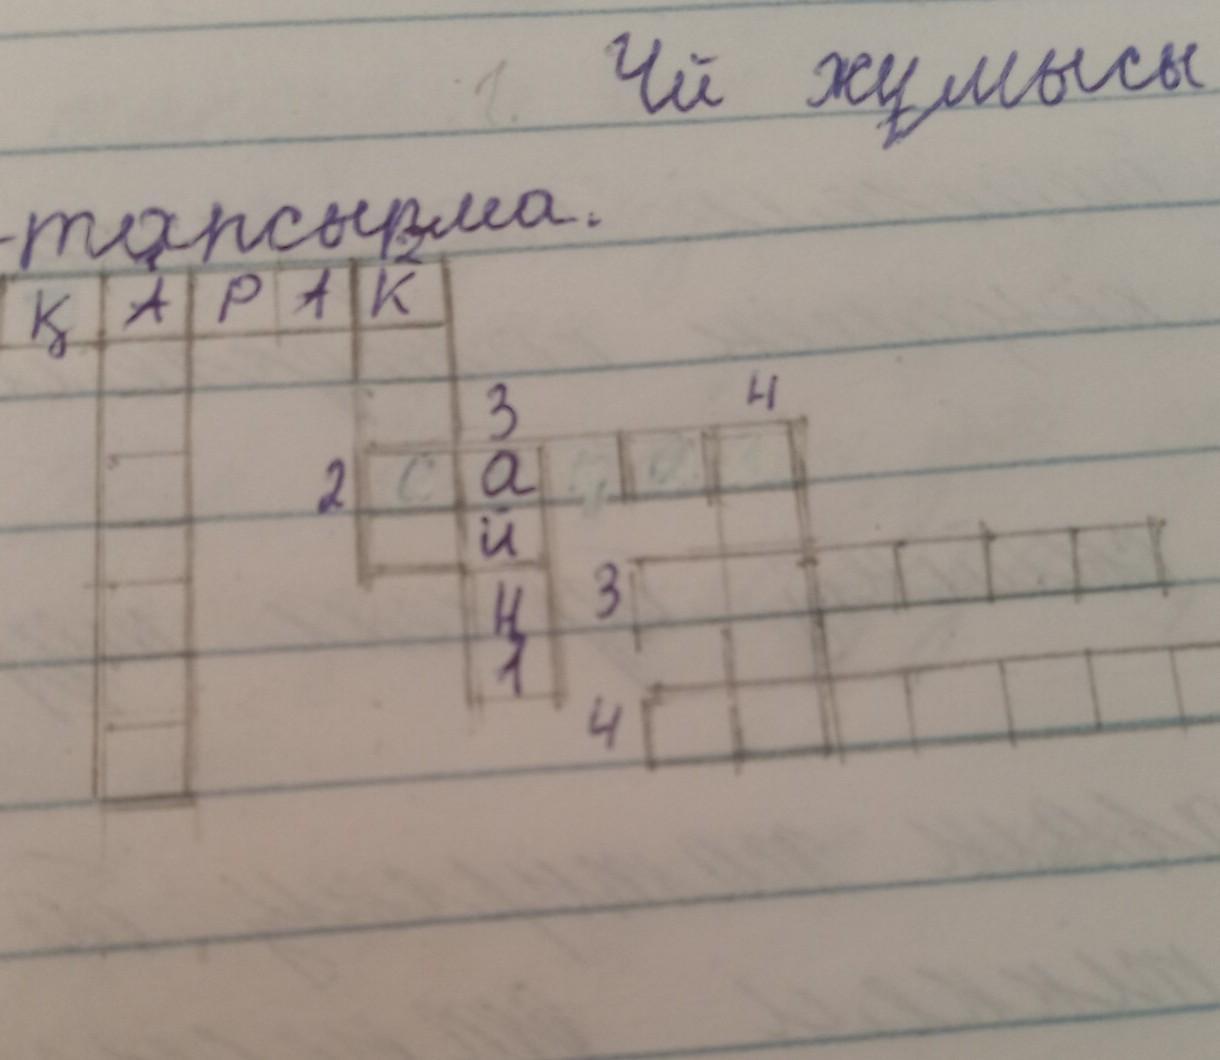 Үй жұмысы
-тапсырма.
2
Қ А Р А К
3
4
2 с а
й
3
н
1
4